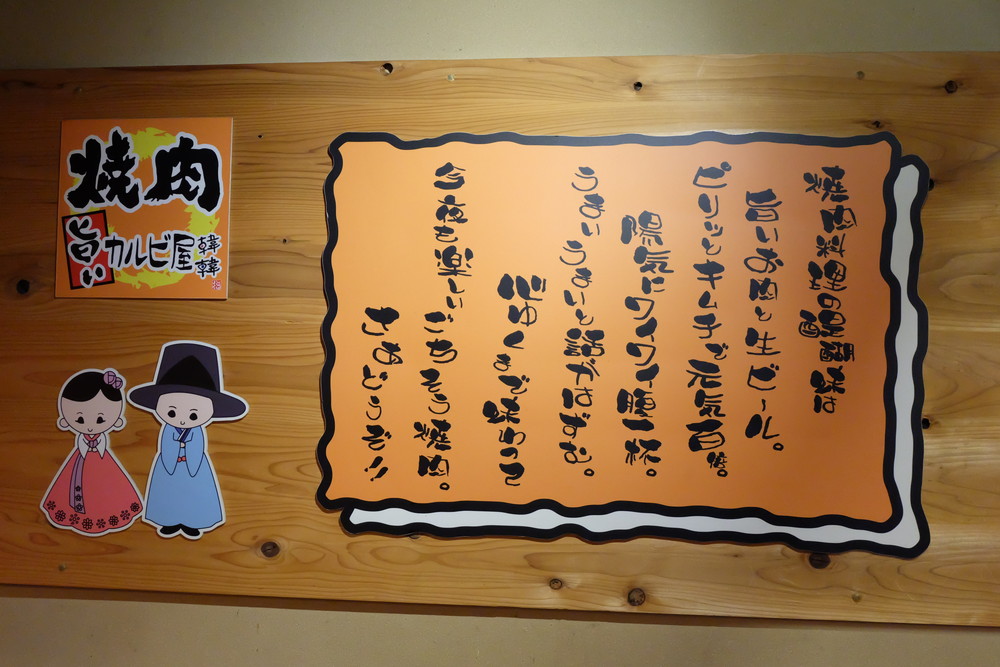 焼肉料理の醍醐味は
旨いお肉と生ビール。
ピリッとキムチで元気百倍。
陽気にワイワイ腹一杯。
うまいうまいと話がはずむ。
心ゆくまで味わって
今夜も楽しいごちそう焼肉。
さあどうぞ!!
焼肉
旨い
カルビ屋
韓韓